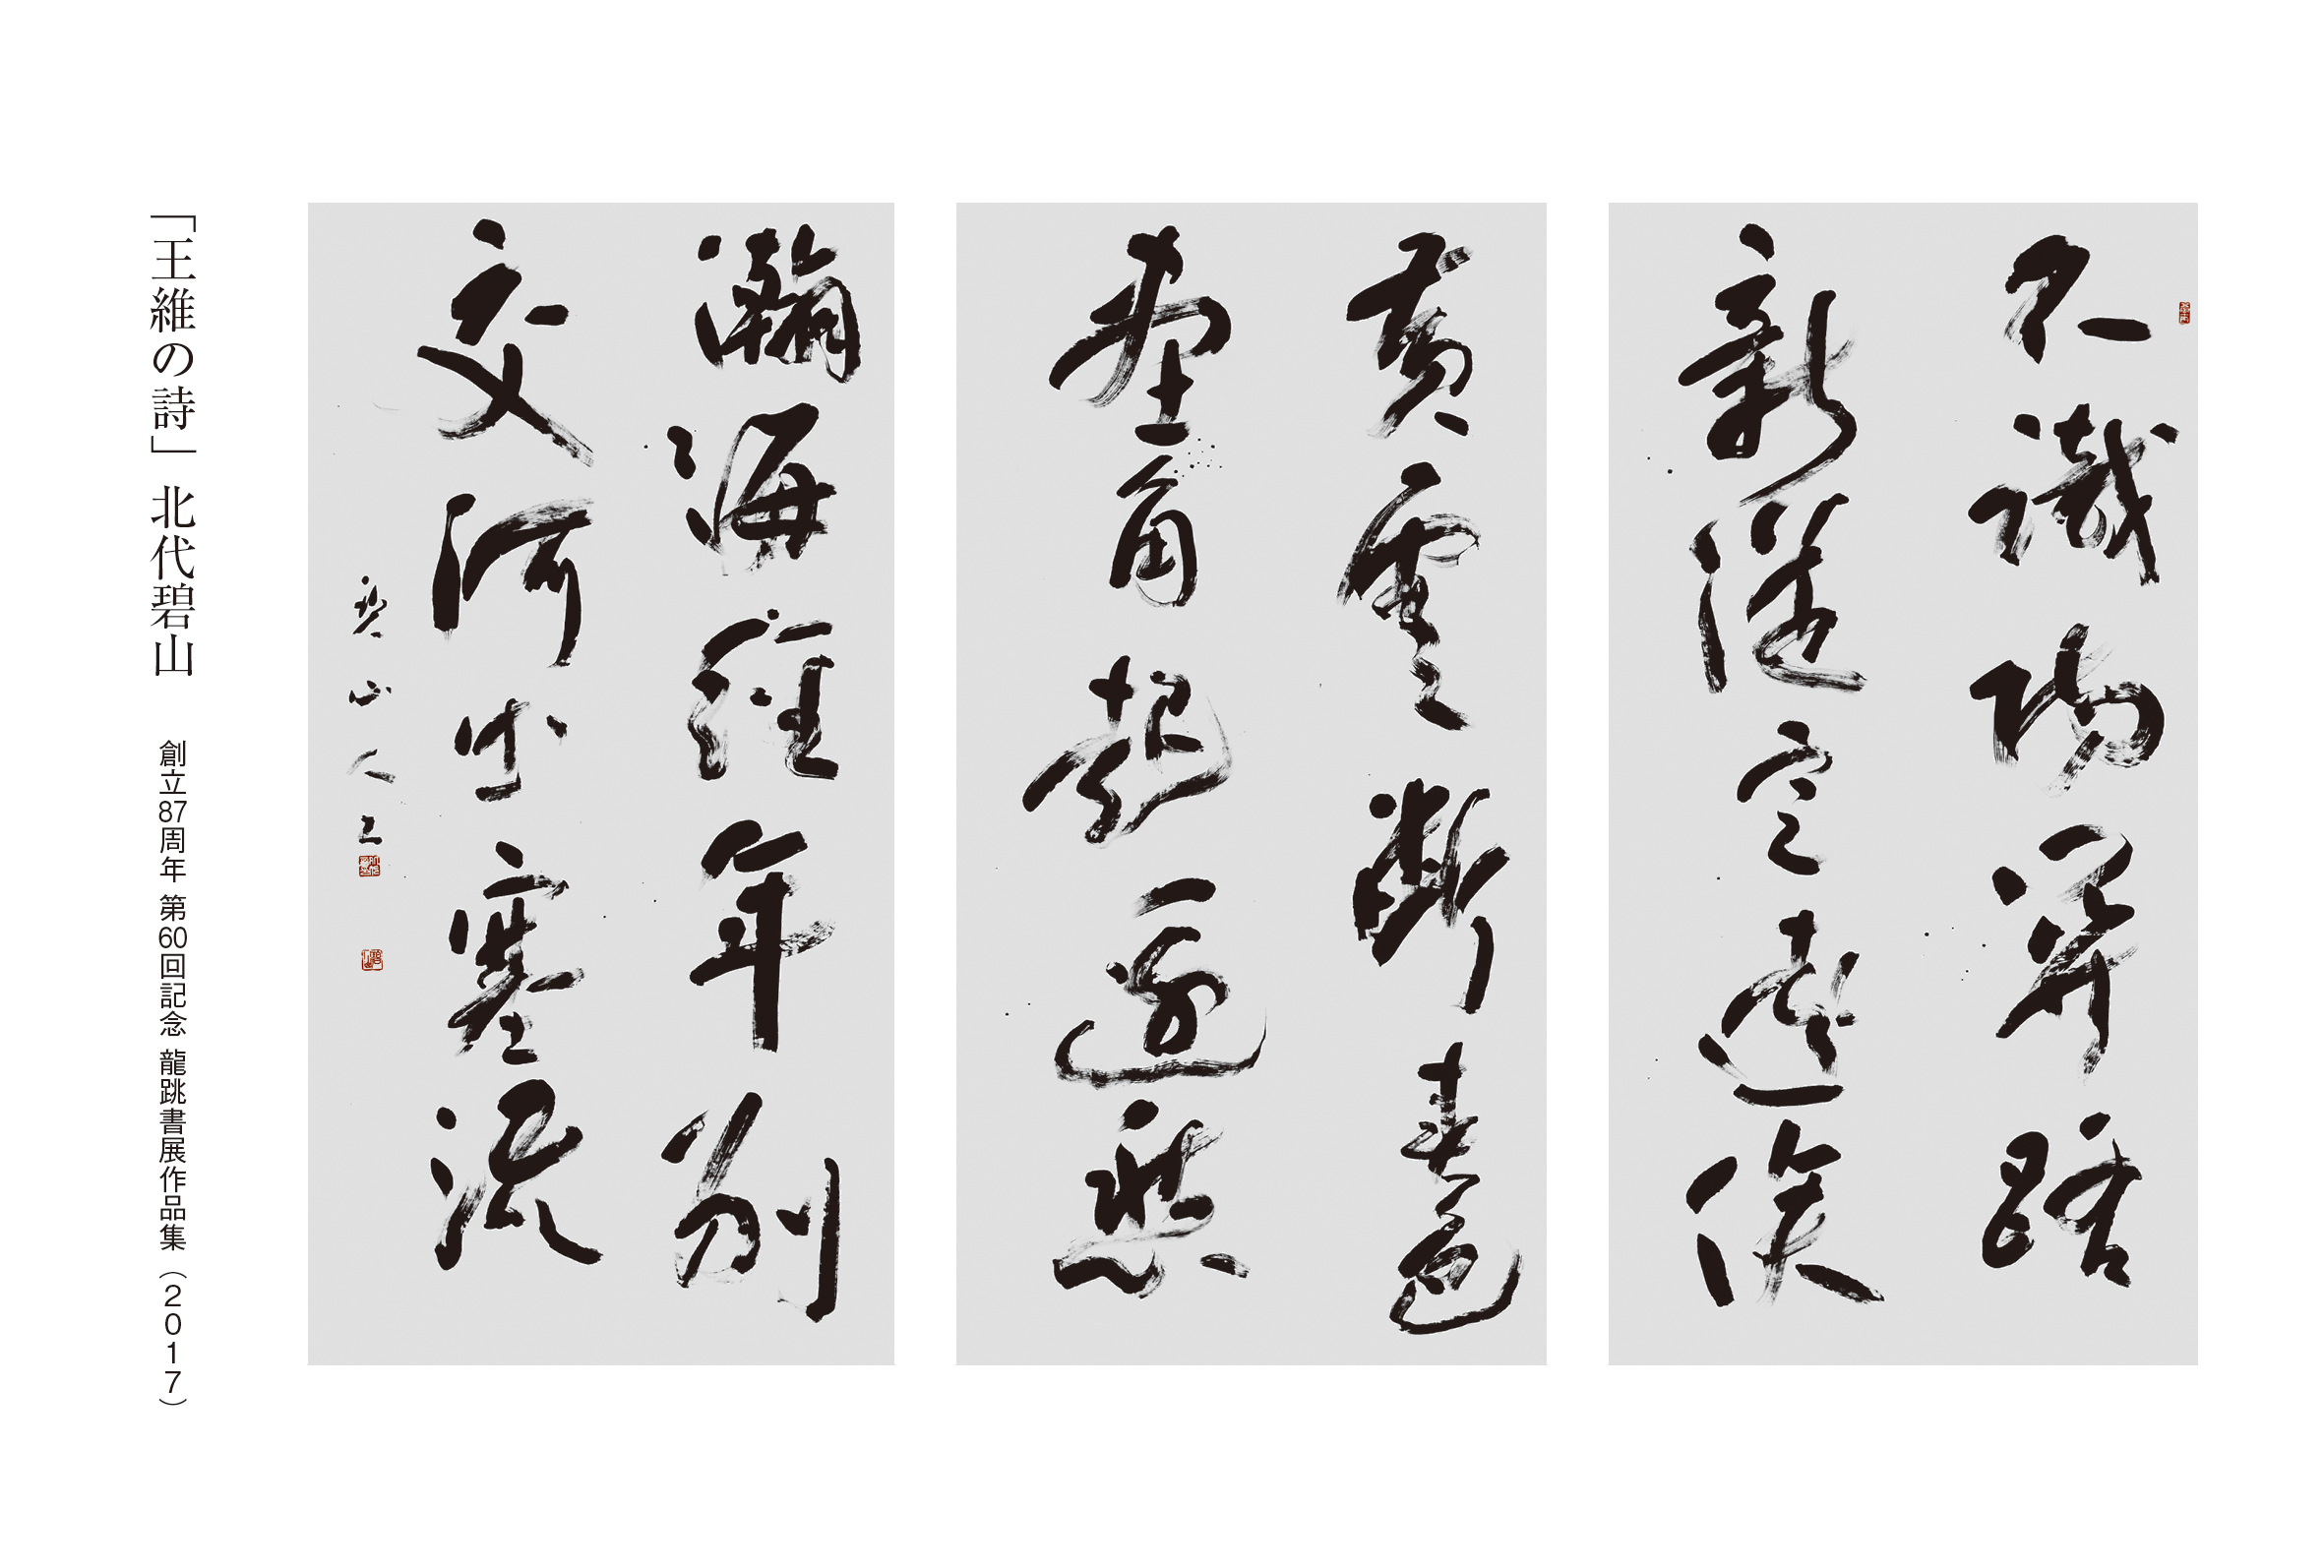 不識陽關路
新從定遠侯
黃雲斷春色
畫角起邊愁
瀚海經年別
交河出塞流
碧山人
「王維の詩」 北代碧山 創立87周年 第60回記念 龍跳書展作品集（2017）